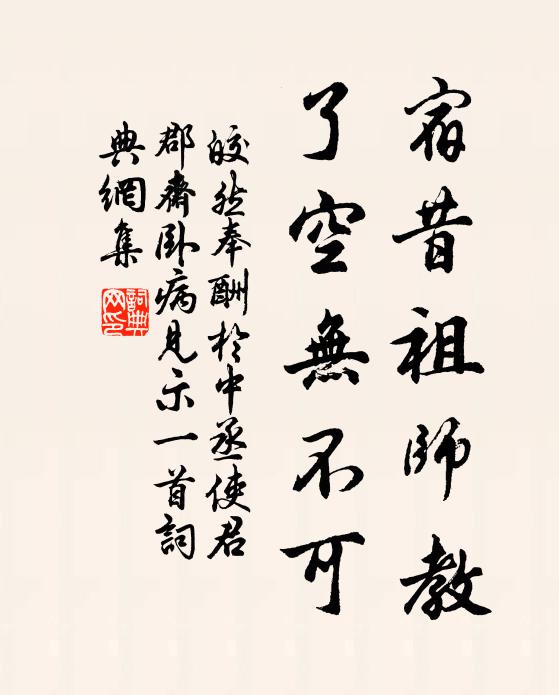 宿昔祖師教
了空無不可
皎然奉酬於中丞使君
郡齋臥病見示一首詞
典網集
詞典網印